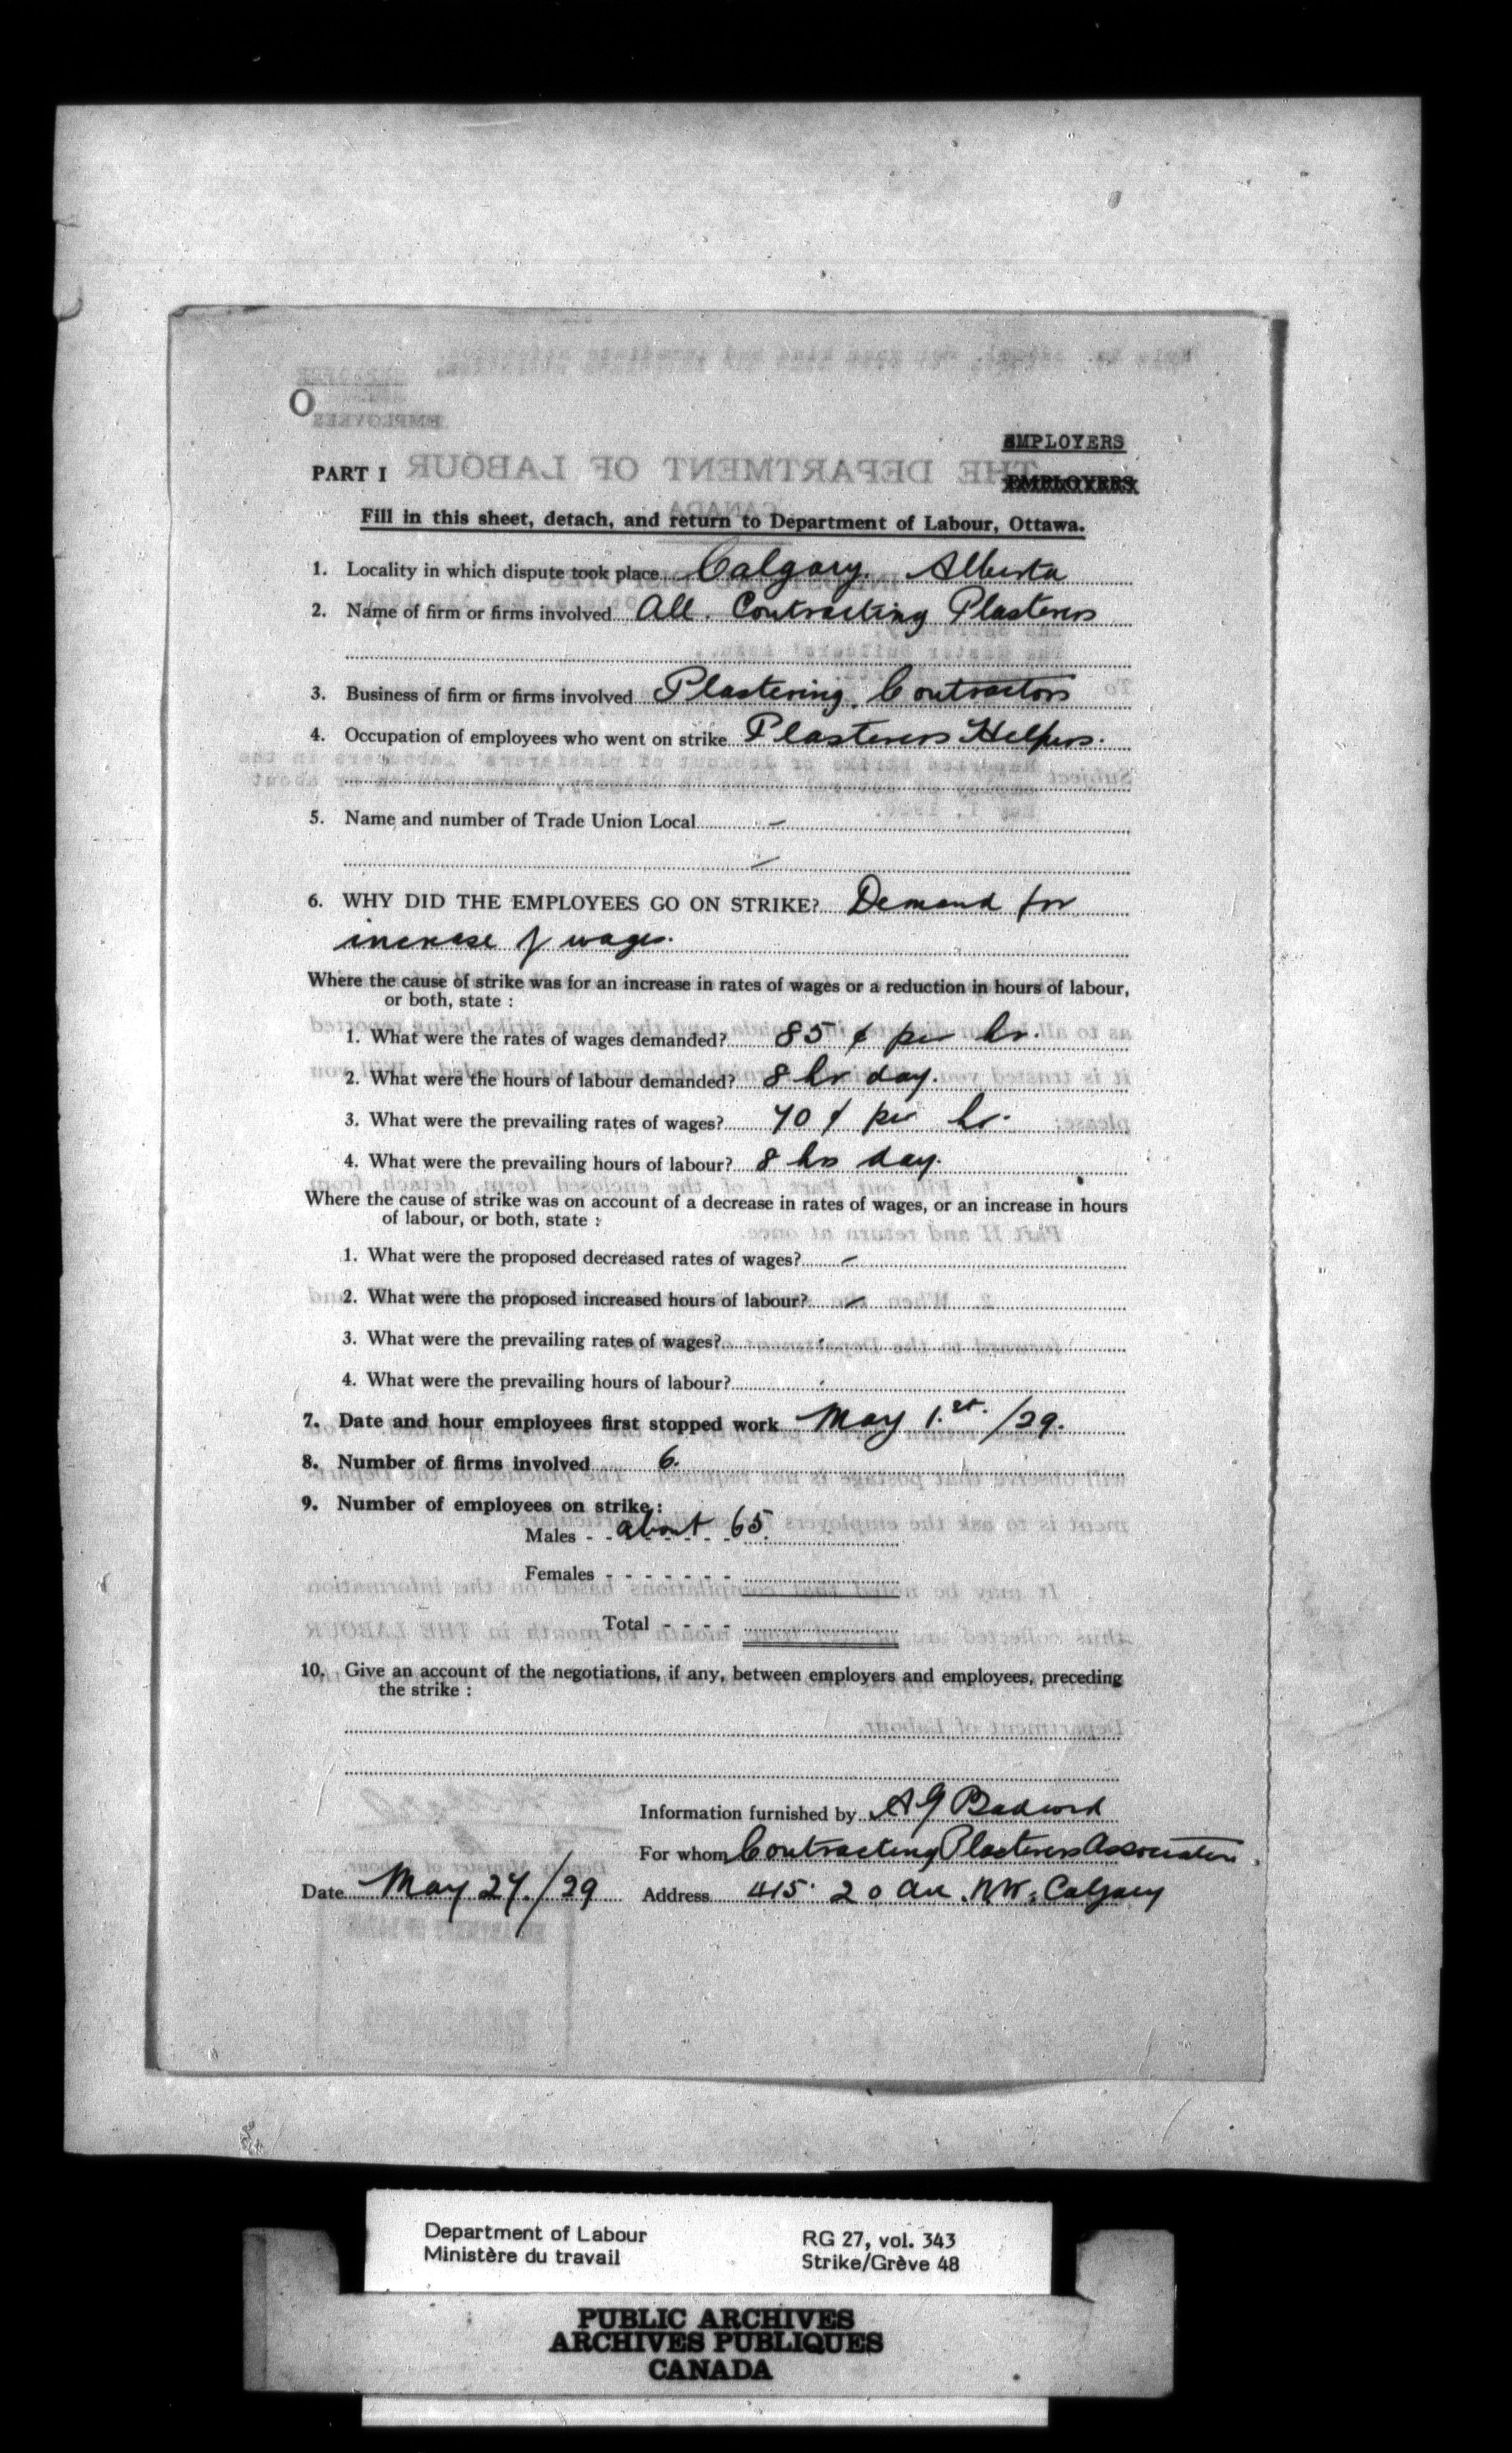 EMPLOYERS
PART I
EMPLOYERS
Fill in this sheet, detach, and return to Department of Labour, Ottawa.
1. Locality in which dispute took place Calgary. Alberta
2. Name of firm or firms involved All. Contracting Plasterers
3. Business of firm or firms involved Plastering. Contractors
4. Occupation of employees who went on strike Plasterers Helpers.
5. Name and number of Trade Union Local —
—
6. WHY DID THE EMPLOYEES GO ON STRIKE? Demand for
increase of wages.
Where the cause of strike was for an increase in rates of wages or a reduction in hours of labour,
or both, state :
1. What were the rates of wages demanded? 85 ¢ per hr.
2. What were the hours of labour demanded? 8 hr day.
3. What were the prevailing rates of wages? 70 ¢ per hr.
4. What were the prevailing hours of labour? 8 hr day.
Where the cause of strike was on account of a decrease in rates of wages, or an increase in hours
of labour, or both, state :
1. What were the proposed decreased rates of wages? —
2. What were the proposed increased hours of labour? —
3. What were the prevailing rates of wages?
4. What were the prevailing hours of labour?
7. Date and hour employees first stopped work May 1.st. /29.
8. Number of firms involved 6.
9. Number of employees on strike :
Males - - about 65.
Females - - - - - - -
Total - - - -
10. Give an account of the negotiations, if any, between employers and employees, preceding
the strike :
Information furnished by A G
For whom Contracting Plasterers Association.
Date May 27./29 Address 415 20 Ave. NW. Calgary
Department of Labour RG 27, vol. 343
Ministère du travail Strike/Grève 48
PUBLIC ARCHIVES
ARCHIVES PUBLIQUES
CANADA